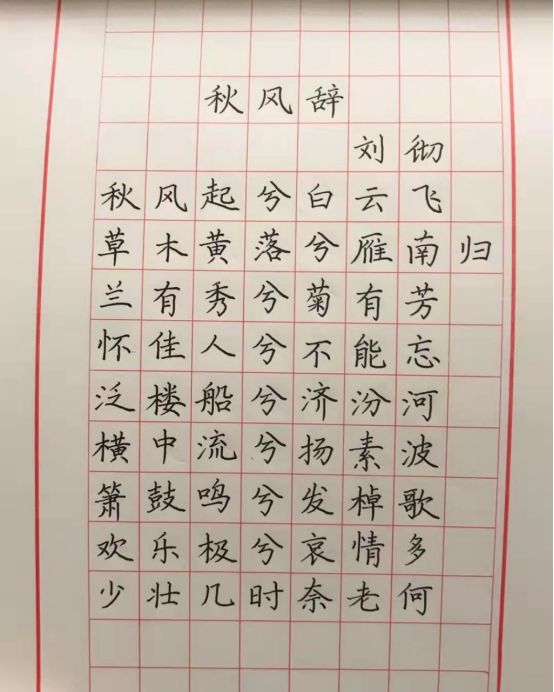 秋风辞
刘彻
秋风起兮白云飞
草木黄落兮雁南归
兰有秀兮菊有芳
怀佳人兮不能忘
泛楼船兮济汾河
横中流兮扬素波
箫鼓鸣兮发棹歌
欢乐极兮哀情多
少壮几时奈老何